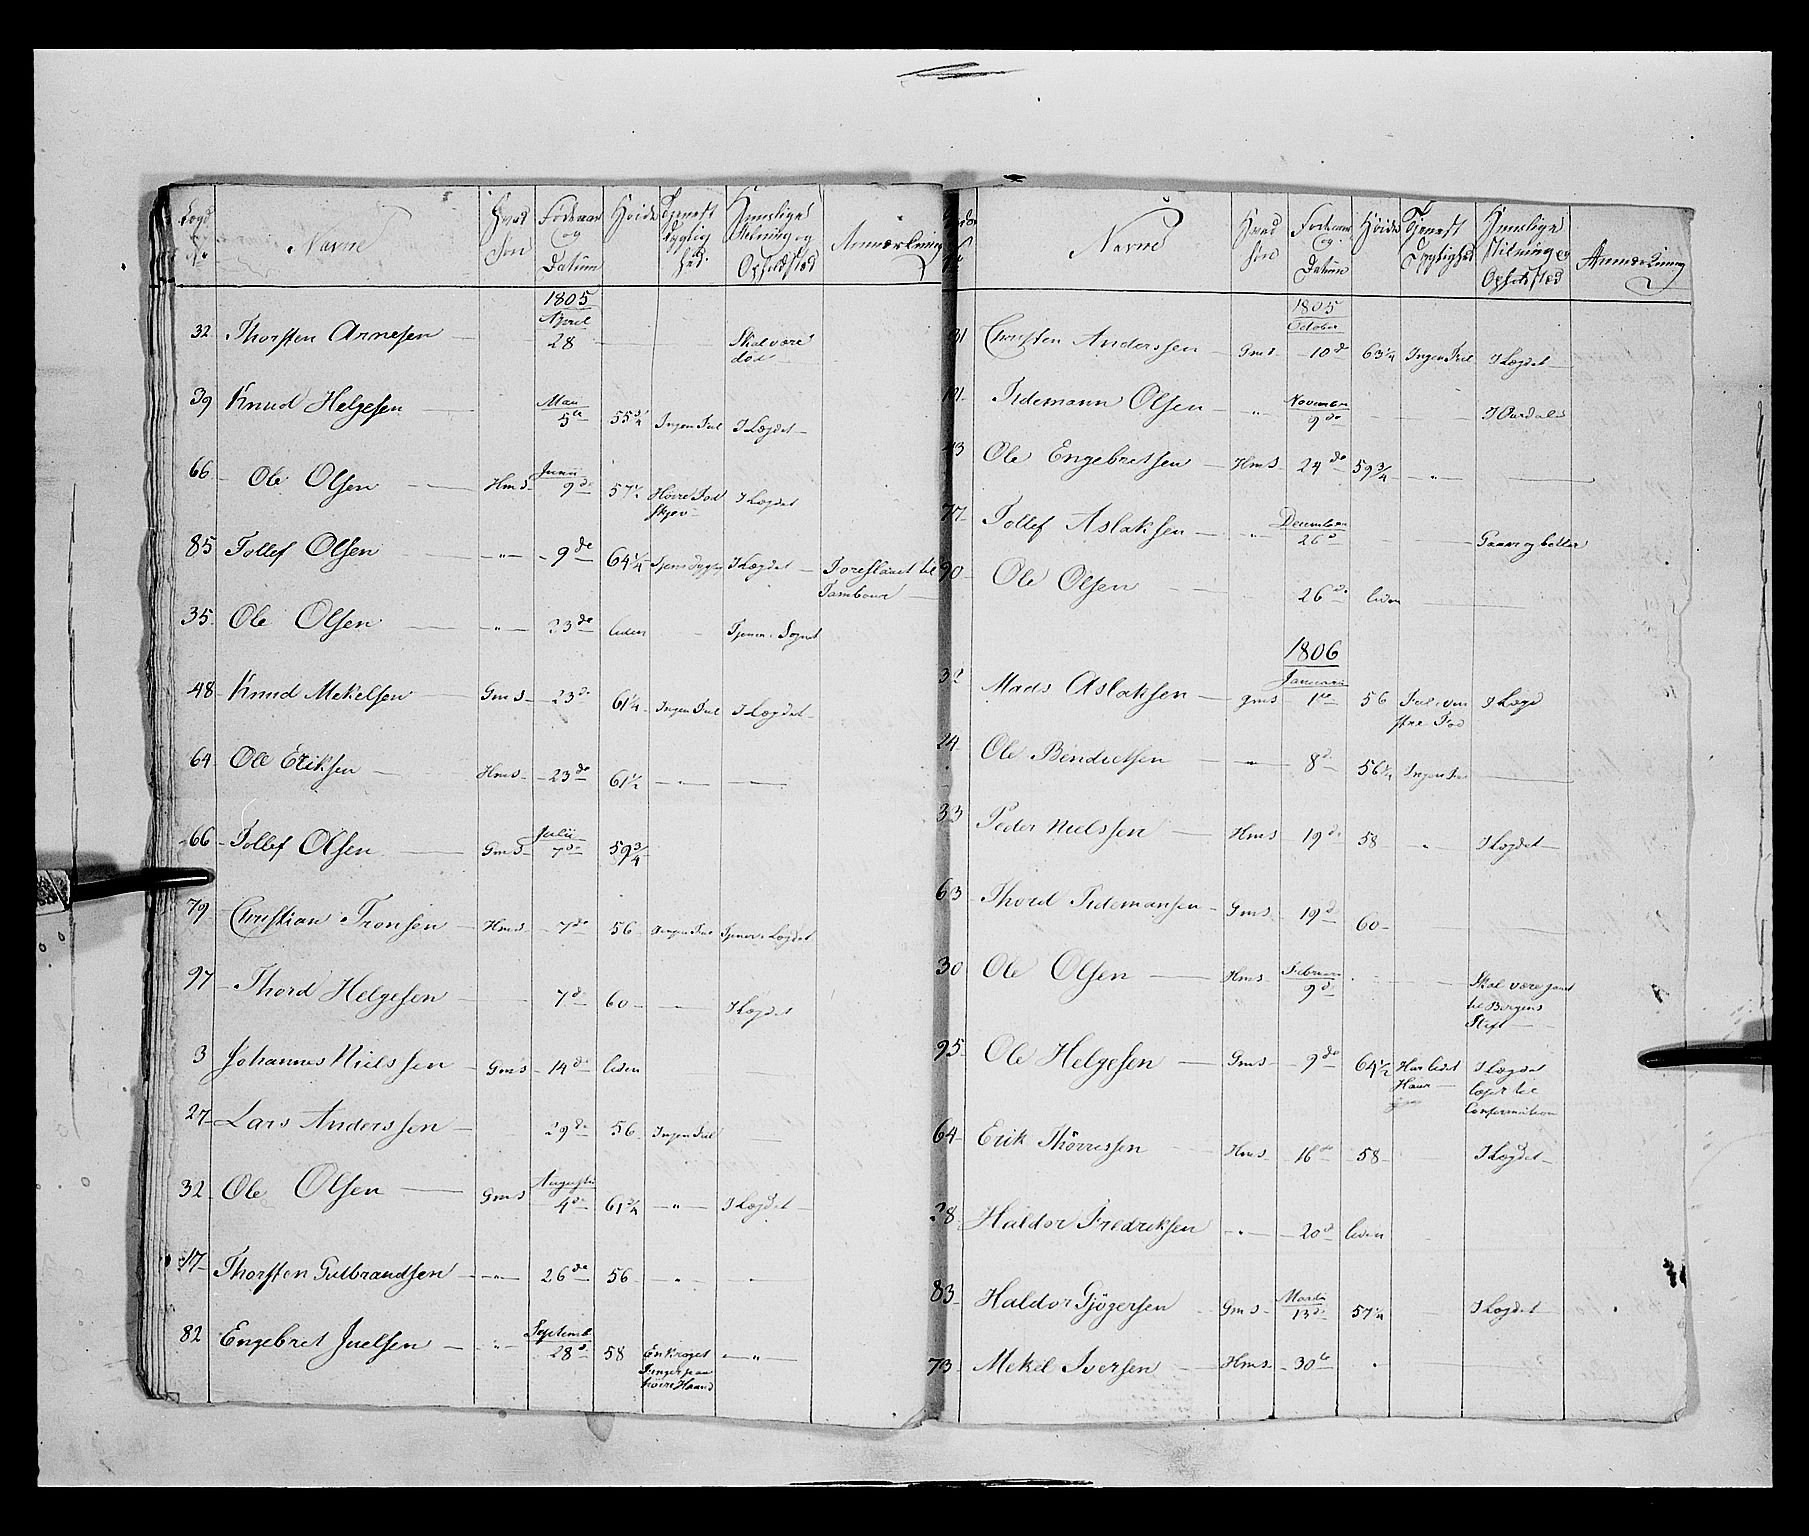 Lægd No Navne Hvad Søn Fødeaar og Datum Høide Tjeneste Dygtighed Huuslige Stilning og Opholdsted Anmærkning
1805
32 Thorsten Arnesen — April 28 — Skal være død
39 Knud Helgesen — Mai 5te 55 3/4 Ingen Feil I Lægdet
66 Ole Olsen — HmS Junii 9de 57 1/2 Høire Fod skjæv I Lægdet
85 Tollef Olsen — " 9de 64 1/4 Tjenstdygtig I Lægdet Foreslaaet til Tambour
35 Ole Olsen — " 23de liden Tjener i Sognet
48 Knud Mekelsen — GmS 23de 61 1/4 Ingen Feil I Lægdet
64 Ole Eriksen — HmS 23de 61 1/2 " —
66 Tollef Olsen — GmS Julii 7de 59 3/4
79 Christian Tronsen — HmS 7de 56 Ingen Feil Tjener i Lægdet
97 Thord Helgesen — 7de 60 — I Lægdet
3 Johannes Nielssen — GmS 14de liden —
27 Lars Anderssen — 29de 56 Ingen Feil —
32 Ole Olsen — GmS Augusti 4de 61 3/4 " I Lægdet
17 Thorsten Gulbrandsen — " 26de 56 " —
82 Engebret Juelsen — " Septemb. 28de 58 En kroget Finger paa høire Haand "
Navne Hvad Søn Fødeaar og Datum Høide Tjeneste Dygtighed Huuslige Stilning og Opholdsted Anmærkning
1805
31 Christen Anderssen — GmS October 10de 63 1/4 Ingen Feil I Lægdet
101 Tidemann Olsen — " November 9de — I Aardal
43 Ole Engebretsen — HmS 24de 59 3/4 " —
77 Tollef Aslaksen — " December 26de — Gaaer og betler
90 Ole Olsen — 26de liden —
1806
32 Mads Aslaksen — GmS Januarii 1te 56 Feil i venstre Fod I Lægd
24 Ole Bendictsen — " 8de 56 1/4 Ingen Feil —
33 Peder Nielssen — HmS 19de 58 " I Lægdet
63 Thord Tidemansen — GmS 19de 60
30 Ole Olsen — HmS Februari 9de — Skal være paa til Bergens Stift
95 Ole Helgesen — GmS 9de 64 1/2 Har lidet Haar I Lægdet læser til Confirmation
64 Erik Thorressen — HmS 16de 58 — I Lægdet
28 Haldor Fredriksen — " 20de liden
83 Haldor Gjøgersen — GmS Martii 13de 57 1/4 I Lægdet
73 Mekel Iversen — HmS 30te "